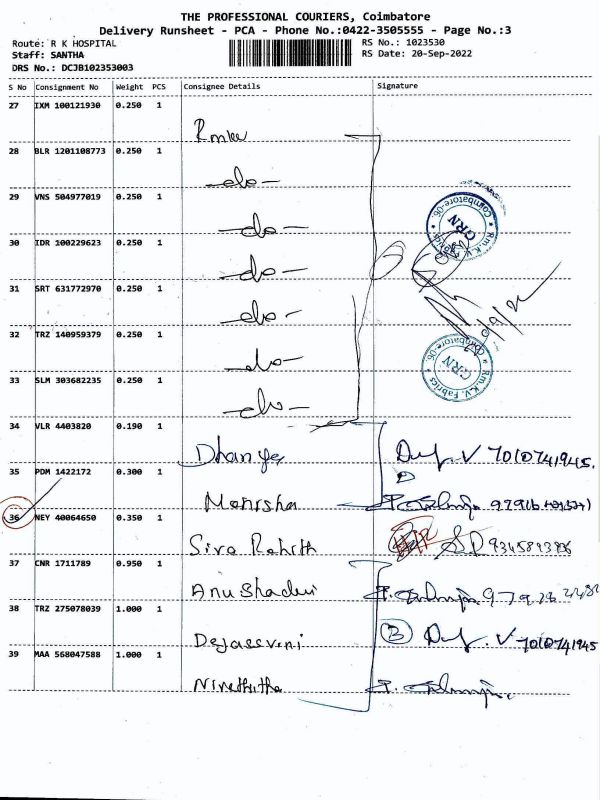 THE PROFESSIONAL COURIERS, Coimbatore
Delivery Runsheet - PCA - Phone No.:0422-3505555 - Page No.:3
Route: R K HOSPITAL
RS No.: 1023530
Staff: SANTHA
RS Date: 20-Sep-2022
DRS No.: DCJB102353003
S No Consignment No Weight PCS Consignee Details Signature
27 IXM 100121930 0.250 1
28 BLR 1201108773 0.250 1
-do-
29 VNS 504977019 0.250 1
-do-
30 IDR 100229623 0.250 1
-do-
31 SRT 631772970 0.250 1
-do-
32 TRZ 140959379 0.250 1
-do-
33 SLM 303682235 0.250 1
-do-
Coimbatore-06.
GRN
Rm.K.V. Fabrics
Coimbatore-06.
GRN
Rm.K.V. Fabrics
34 VLR 4403820 0.190 1
Dhanya V 7010741945.
35 PDM 1422172 0.300 1
Manisha
36 NEY 40064650 0.350 1
Siva Rohith
37 CNR 1711789 0.950 1
38 TRZ 275078039 1.000 1
Dejassvini V 7010741945
39 MAA 568047588 1.000 1